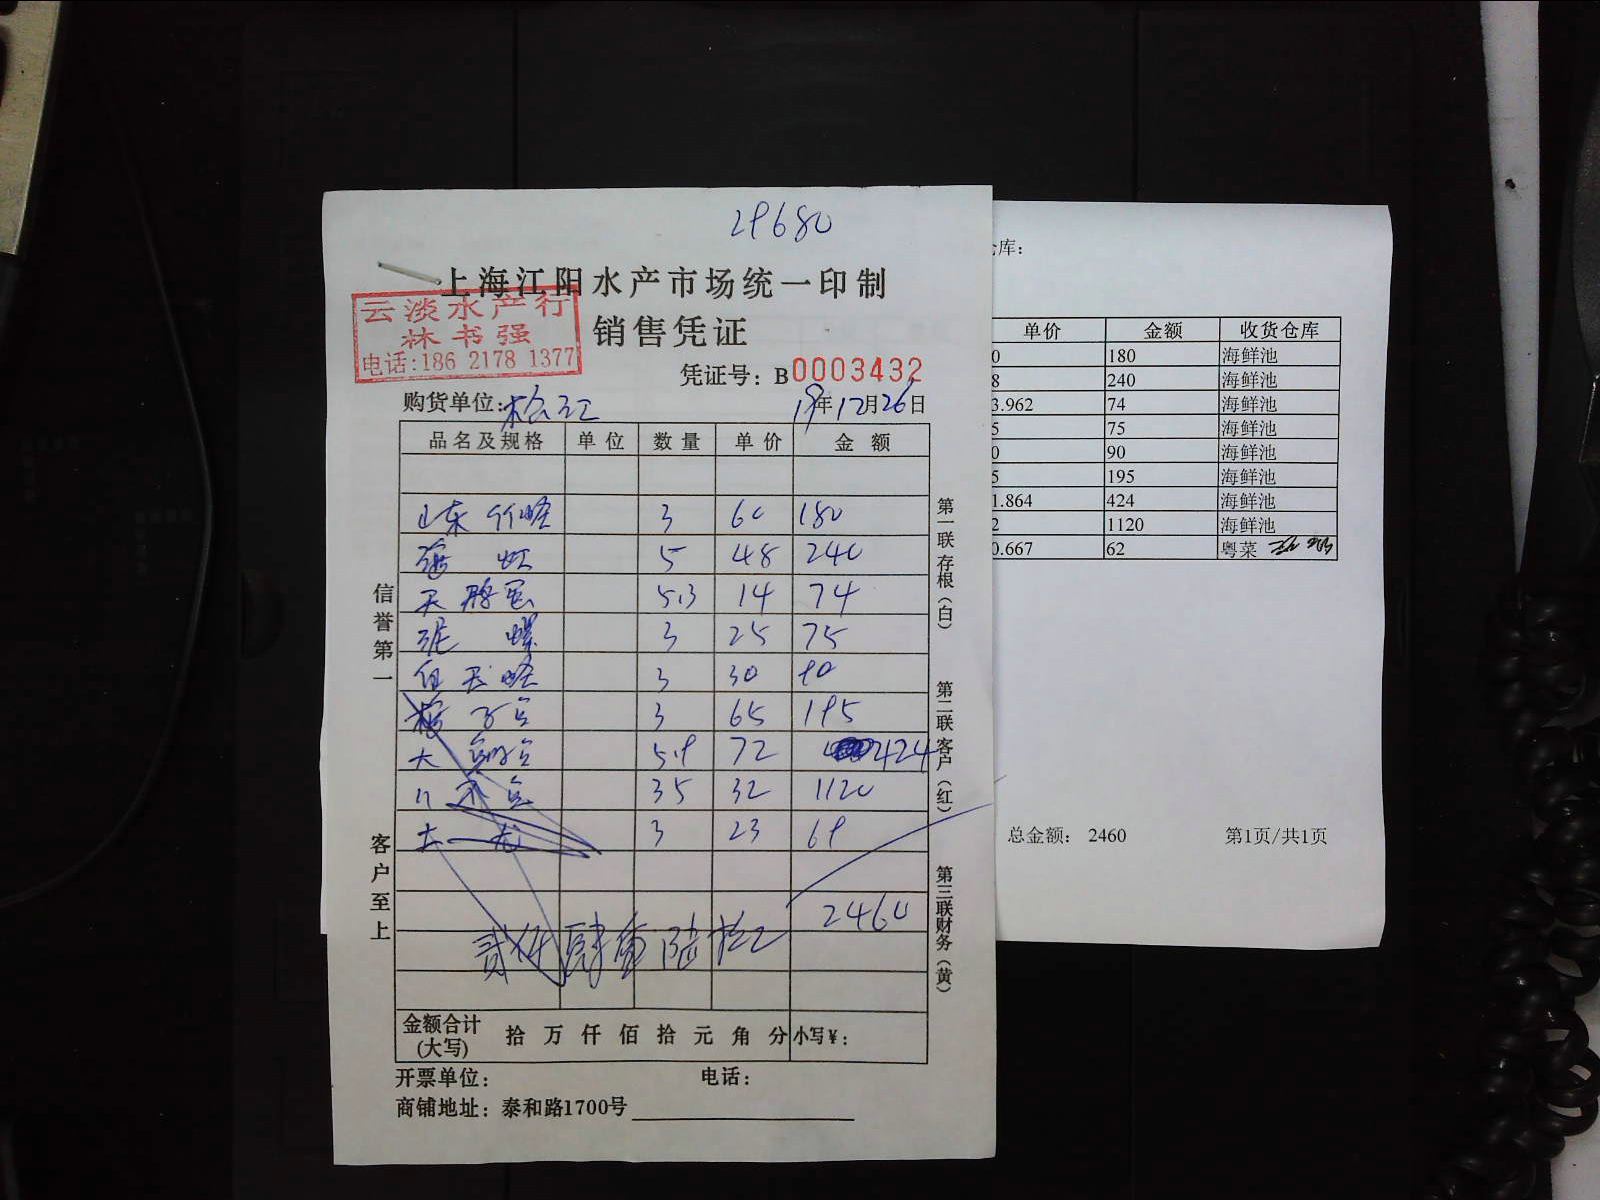 29680
上海江阳水产市场统一印制
云淡水产行
林书强
电话:186 2178 1377
销售凭证
凭证号: B0003432
购货单位: 松江 19年12月26日
品名及规格 单位 数量 单价 金额
山东竹蛏 3 60 180
海虹 5 48 240
5.3 14 74
泥螺 3 25 75
蛏 3 30 90
3 65 195
大 5.9 72 424
35 32 1120
大 3 23 69
2460
贰仟肆佰陆拾元
金额合计(大写) 拾 万 仟 佰 拾 元 角 分 小写¥:
开票单位: 电话:
商铺地址: 泰和路1700号
信誉第一
客户至上
第一联存根(白)
第二联客户(红)
第三联财务(黄)
库:
单价 金额 收货仓库
0 180 海鲜池
8 240 海鲜池
3.962 74 海鲜池
5 75 海鲜池
0 90 海鲜池
5 195 海鲜池
1.864 424 海鲜池
2 1120 海鲜池
0.667 62 粤菜
总金额: 2460 第1页/共1页